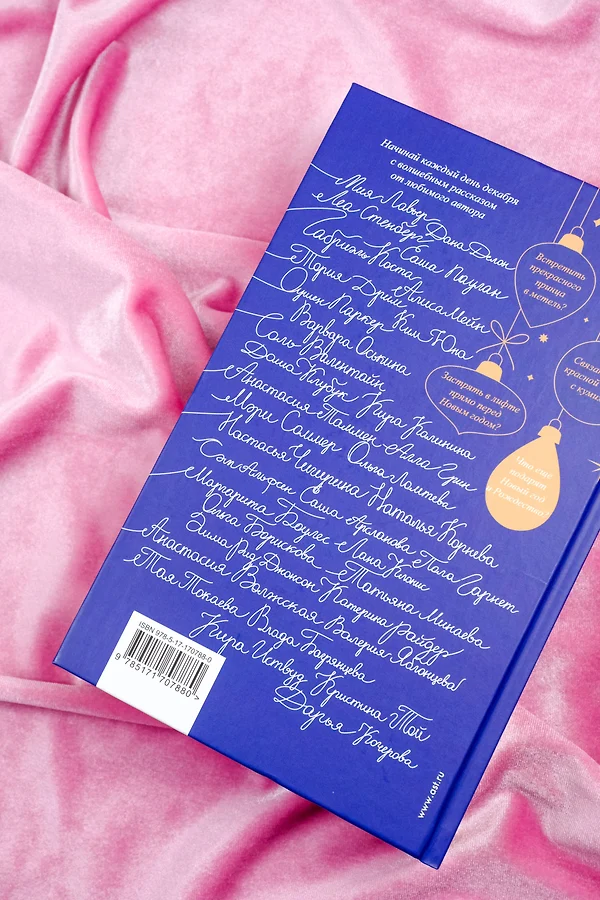 Начинай каждый день декабря
с волшебным рассказом
от любимого автора
Мия Лавьер Дана Делон
Леа Стенберг Саша Паулан
Габриэль Коста Алиса Мейн
Тория Дрим Ким Юна
Оушен Паркер
Варвара Оськина
Соль Валентайн
Даша Клубук Кира Калинина
Анастасия Таммен Алла Грин
Мэри Соммер Ольга Ломтева
Настасья Чигирина Наталья Корнева
Сол Альфен Саша Авсланова Пола Гарнет
Маргерита Боулес Лана Клокис
Ольга Борискова Татьяна Минаева
Эмма Рид Джонсон Катерина Райдер
Анастасия Волжская Валерия Яблонцева
Тая Токаева Влада Багрянцева
Кира Иствуд Кристина Той
Дарья Кочерова
Встретить
прекрасного
принца
в метель?
Связан
красной
Застрять в лифте
прямо перед
Новым годом?
Что еще
подарит
Новый год
и Рождество?
ISBN 978-5-17-170788-0
9 785171 707880 >
www.ast.ru